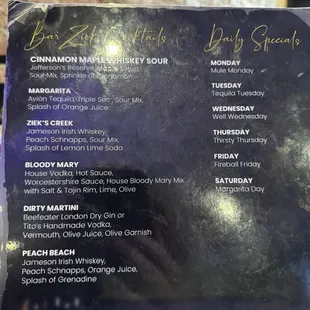 Bar Ziek Cocktails
CINNAMON MAPLE WHISKEY SOUR
Jefferson's Reserve, Maple Syrup,
Sour Mix, Sprinkle of Cinnamon
MARGARITA
Avión Tequila, Triple Sec, Sour Mix,
Splash of Orange Juice
ZIEK'S CREEK
Jameson Irish Whiskey
Peach Schnapps, Sour Mix,
Splash of Lemon Lime Soda
BLOODY MARY
House Vodka, Hot Sauce,
Worcestershire Sauce, House Bloody Mary Mix
with Salt & Tajin Rim, Lime, Olive
DIRTY MARTINI
Beefeater London Dry Gin or
Tito's Handmade Vodka,
Vermouth, Olive Juice, Olive Garnish
PEACH BEACH
Jameson Irish Whiskey,
Peach Schnapps, Orange Juice,
Splash of Grenadine
Daily Specials
MONDAY
Mule Monday
TUESDAY
Tequila Tuesday
WEDNESDAY
Well Wednesday
THURSDAY
Thirsty Thursday
FRIDAY
Fireball Friday
SATURDAY
Margarita Day